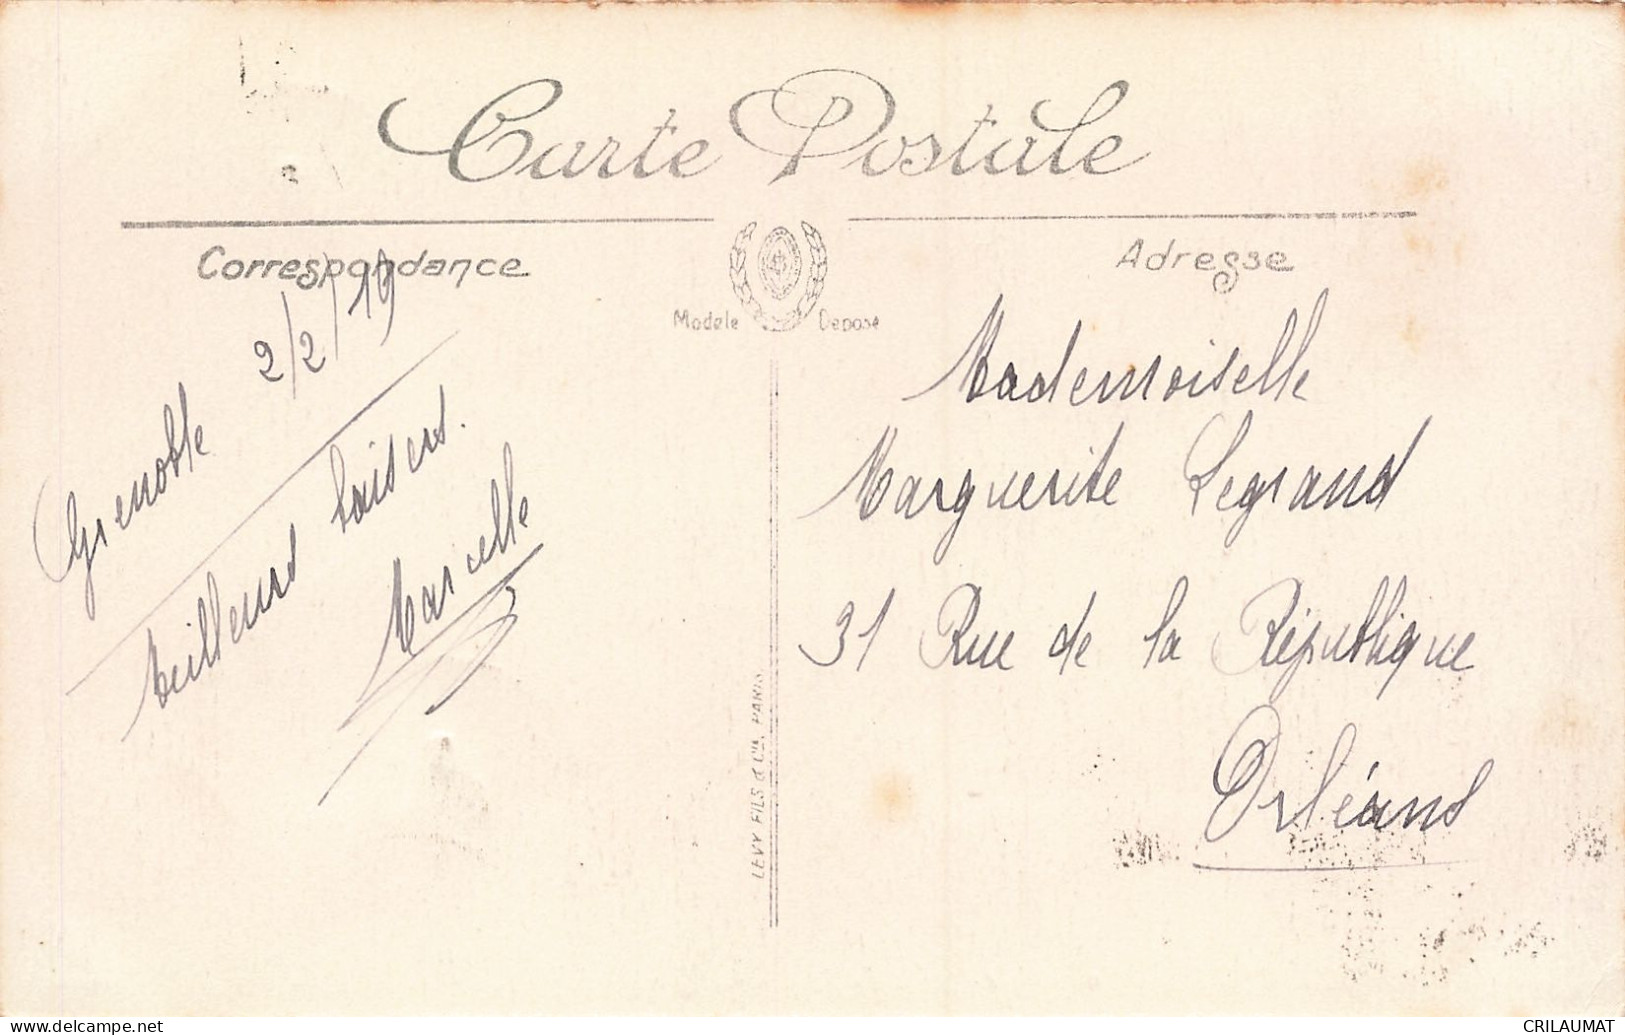 Carte Postale
Correspondance
Adresse
Modele Depose
Grenoble 2/2/19
Meilleurs baisers.
Marcelle
LEVY FILS & Cie, PARIS
Mademoiselle
Marguerite Legrand
31 Rue de la République
Orléans
www.delcampe.net
CRILAUMAT